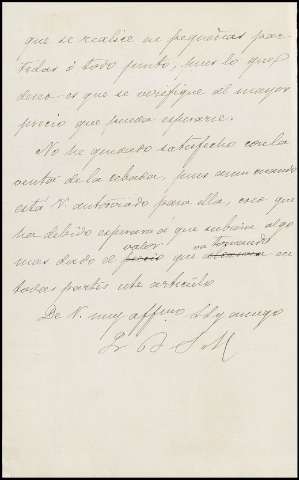 que se realice en pequeñas par-
tidas ó todo junto, pues lo que
deseo es que se verifique al mayor
precio que pueda esperarse.
No he quedado satisfecho con la
venta de la cebada, pues aun cuando
está V. autorizado para ella, creo que
ha debido esperar á que subiera algo
valor va tomando
mas dado el precio que en
todas partes este artículo
De V. muy affmo. y amigo